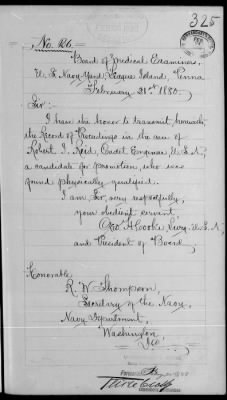 325
No. 126.
Board of Medical Examiners,
U. S. Navy-Yard League Island, Penna
February 21st 1880.
Sir:-
I have the honor to transmit herewith
the Record of Proceedings in the case of
Robert I. Reid, Cadet Engineer U.S.N.,
a candidate for promotion, who was
found physically qualified.
I am Sir, very respectfully,
your obedient servant,
Geo. H. Cooke Surg. U.S.N.,
and President of Board.
Honorable
R. W. Thompson,
Secretary of the Navy,
Navy Department,
Washington
D.C.